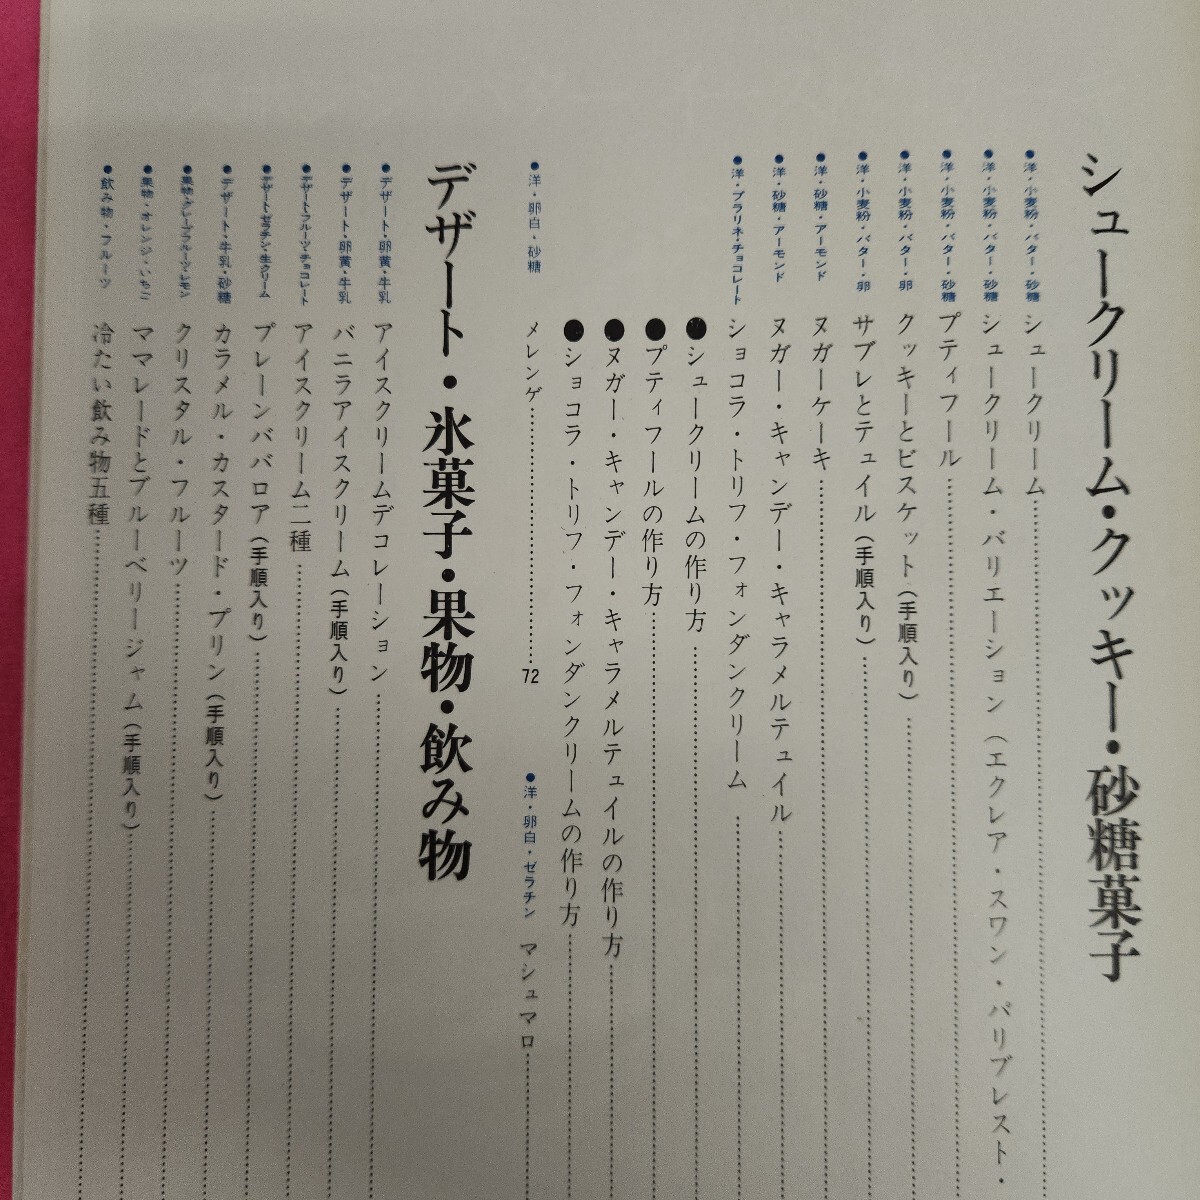 シュークリーム・クッキー・砂糖菓子
●洋・小麦粉・バター・砂糖 シュークリーム
●洋・小麦粉・バター・砂糖 シュークリーム・バリエーション（エクレア・スワン・パリブレスト・
●洋・小麦粉・バター・砂糖 プティフール
●洋・小麦粉・バター・卵 クッキーとビスケット（手順入り）
●洋・小麦粉・バター・卵 サブレとテュイル（手順入り）
●洋・砂糖・アーモンド ヌガーケーキ
●洋・砂糖・アーモンド ヌガー・キャンデー・キャラメルテュイル
●洋・プラリネ・チョコレート ショコラ・トリフ・フォンダンクリーム
●シュークリームの作り方
●プティフールの作り方
●ヌガー・キャンデー・キャラメルテュイルの作り方
●ショコラ・トリフ・フォンダンクリームの作り方
●洋・卵白・砂糖 メレンゲ 72 ●洋・卵白・ゼラチン マシュマロ
デザート・氷菓子・果物・飲み物
●デザート・卵黄・牛乳 アイスクリームデコレーション
●デザート・卵黄・牛乳 バニラアイスクリーム（手順入り）
●デザート・フルーツ・チョコレート アイスクリーム二種
●デザート・ゼラチン・生クリーム プレーンババロア（手順入り）
●デザート・牛乳・砂糖 カラメル・カスタード・プリン（手順入り）
●果物・グレープフルーツ・レモン クリスタル・フルーツ
●果物・オレンジ・いちご ママレードとブルーベリージャム（手順入り）
●飲み物・フルーツ 冷たい飲み物五種